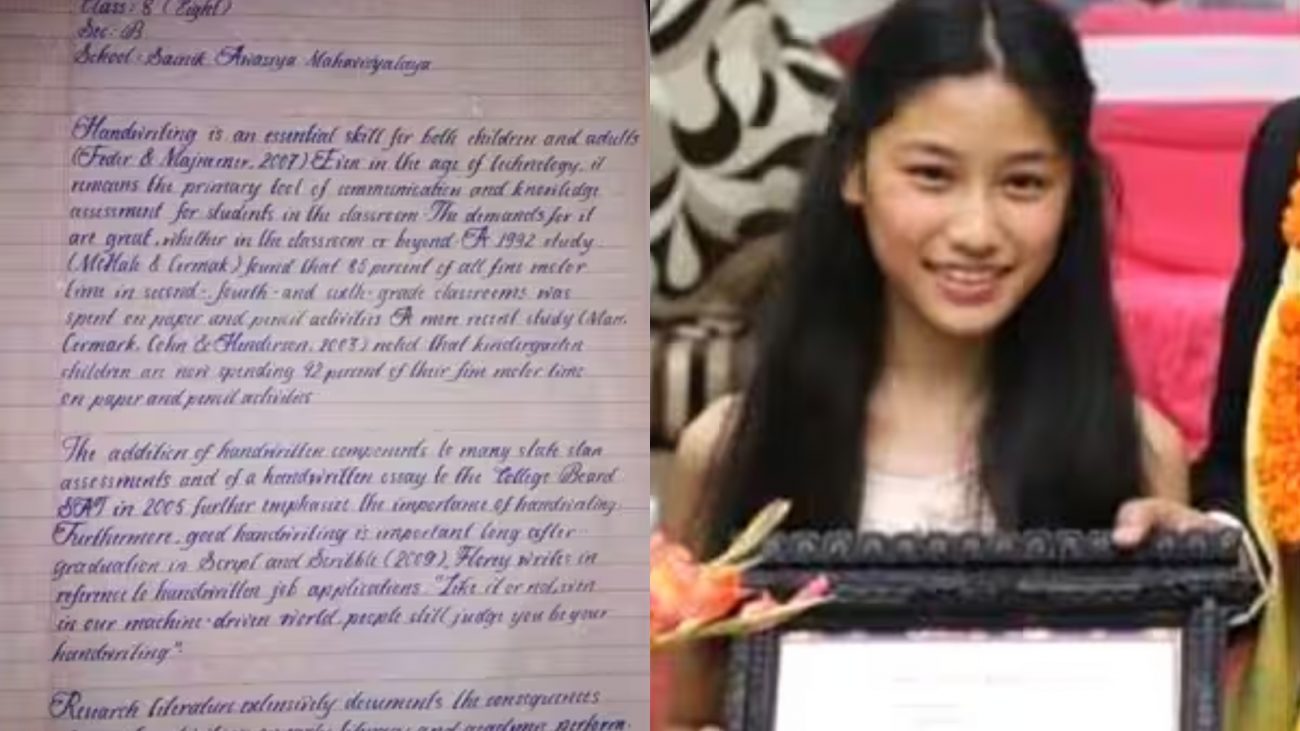 Class: 8 (Eight)
Sec: B
School: Sainik Awasiya Mahavidyalaya
Handwriting is an essential skill for both children and adults
(Feder & Majnemer, 2007) Even in the age of technology, it
remains the primary tool of communication and knowledge
assessment for students in the classroom The demands for it
are great, whether in the classroom or beyond. A 1992 study
(McHale & Cermak) found that 85 percent of all fine motor
time in second-, fourth-and sixth-grade classrooms was
spent on paper and pencil activities A more recent study (Marr,
Cermark, Cohn & Henderson, 2003) noted that kindergarten
children are now spending 42 percent of their fine motor time
on paper and pencil activities
The addition of handwritten components to many state stan
assessments and of a handwritten essay to the College Board
SAT in 2005 further emphasize the importance of handwriting.
Furthermore, good handwriting is important long after
graduation in Script and Scribble (2009), Florey writes in
reference to handwritten job applications. "Like it or not, even
in our machine-driven world, people still judge you by your
handwriting".
Research literature extensively documents the consequences
and academic perform-